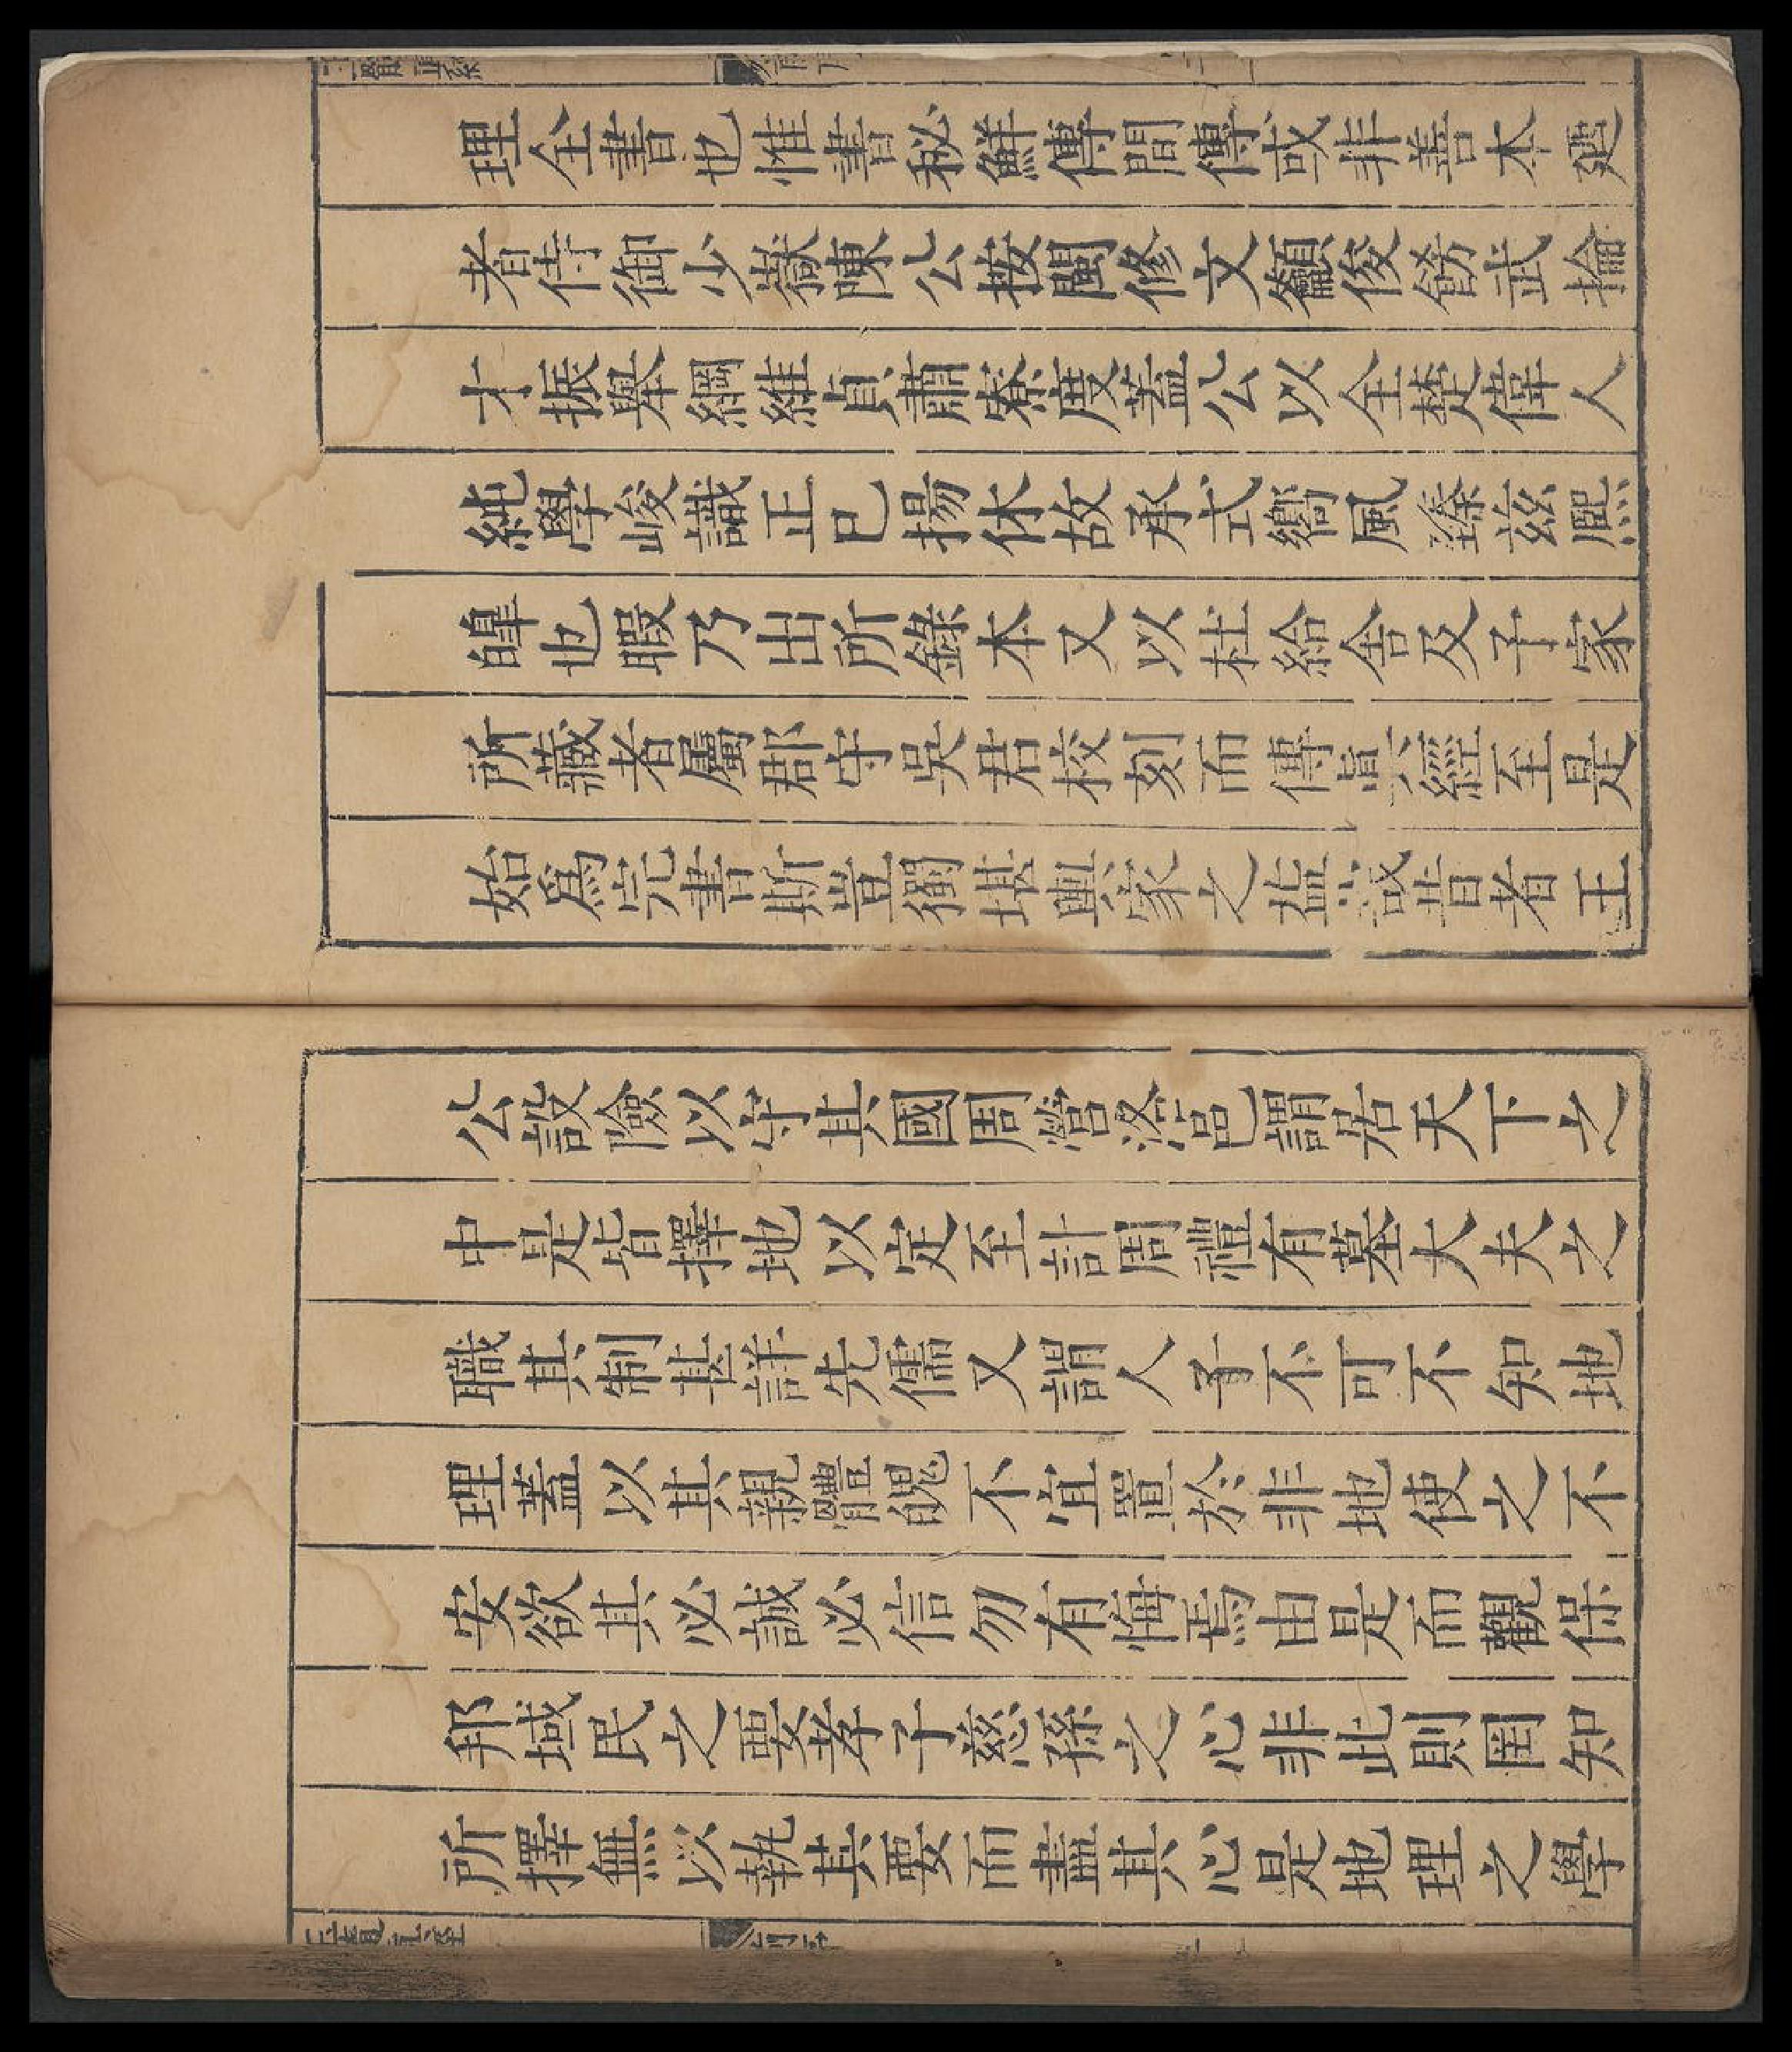 理全書也惟書秘鮮傳間傳或非善本廼
者侍御少嶽陳公按閩修文籲俊飭武掄
才振舉綱維貞肅寮度蓋公以全楚偉人
純學峻識正已揚休故承式嚮風臻茲熙
皥也暇乃出所錄本又以杜給舍及子家
所藏者屬郡守吳君校刻而傳眞經至是
始爲完書斯豈獨堪輿家之益哉昔者王
公設險以守其國周營洛邑謂居天下之
中是皆擇地以定至計周禮有墓大夫之
職其制甚詳先儒又謂人子不可不知地
理蓋以其親體魄不宜置於非地使之不
安欲其必誠必信勿有悔焉由是而觀保
邦域民之要孝子慈孫之心非此則罔知
所擇無以執其要而盡其心是地理之學